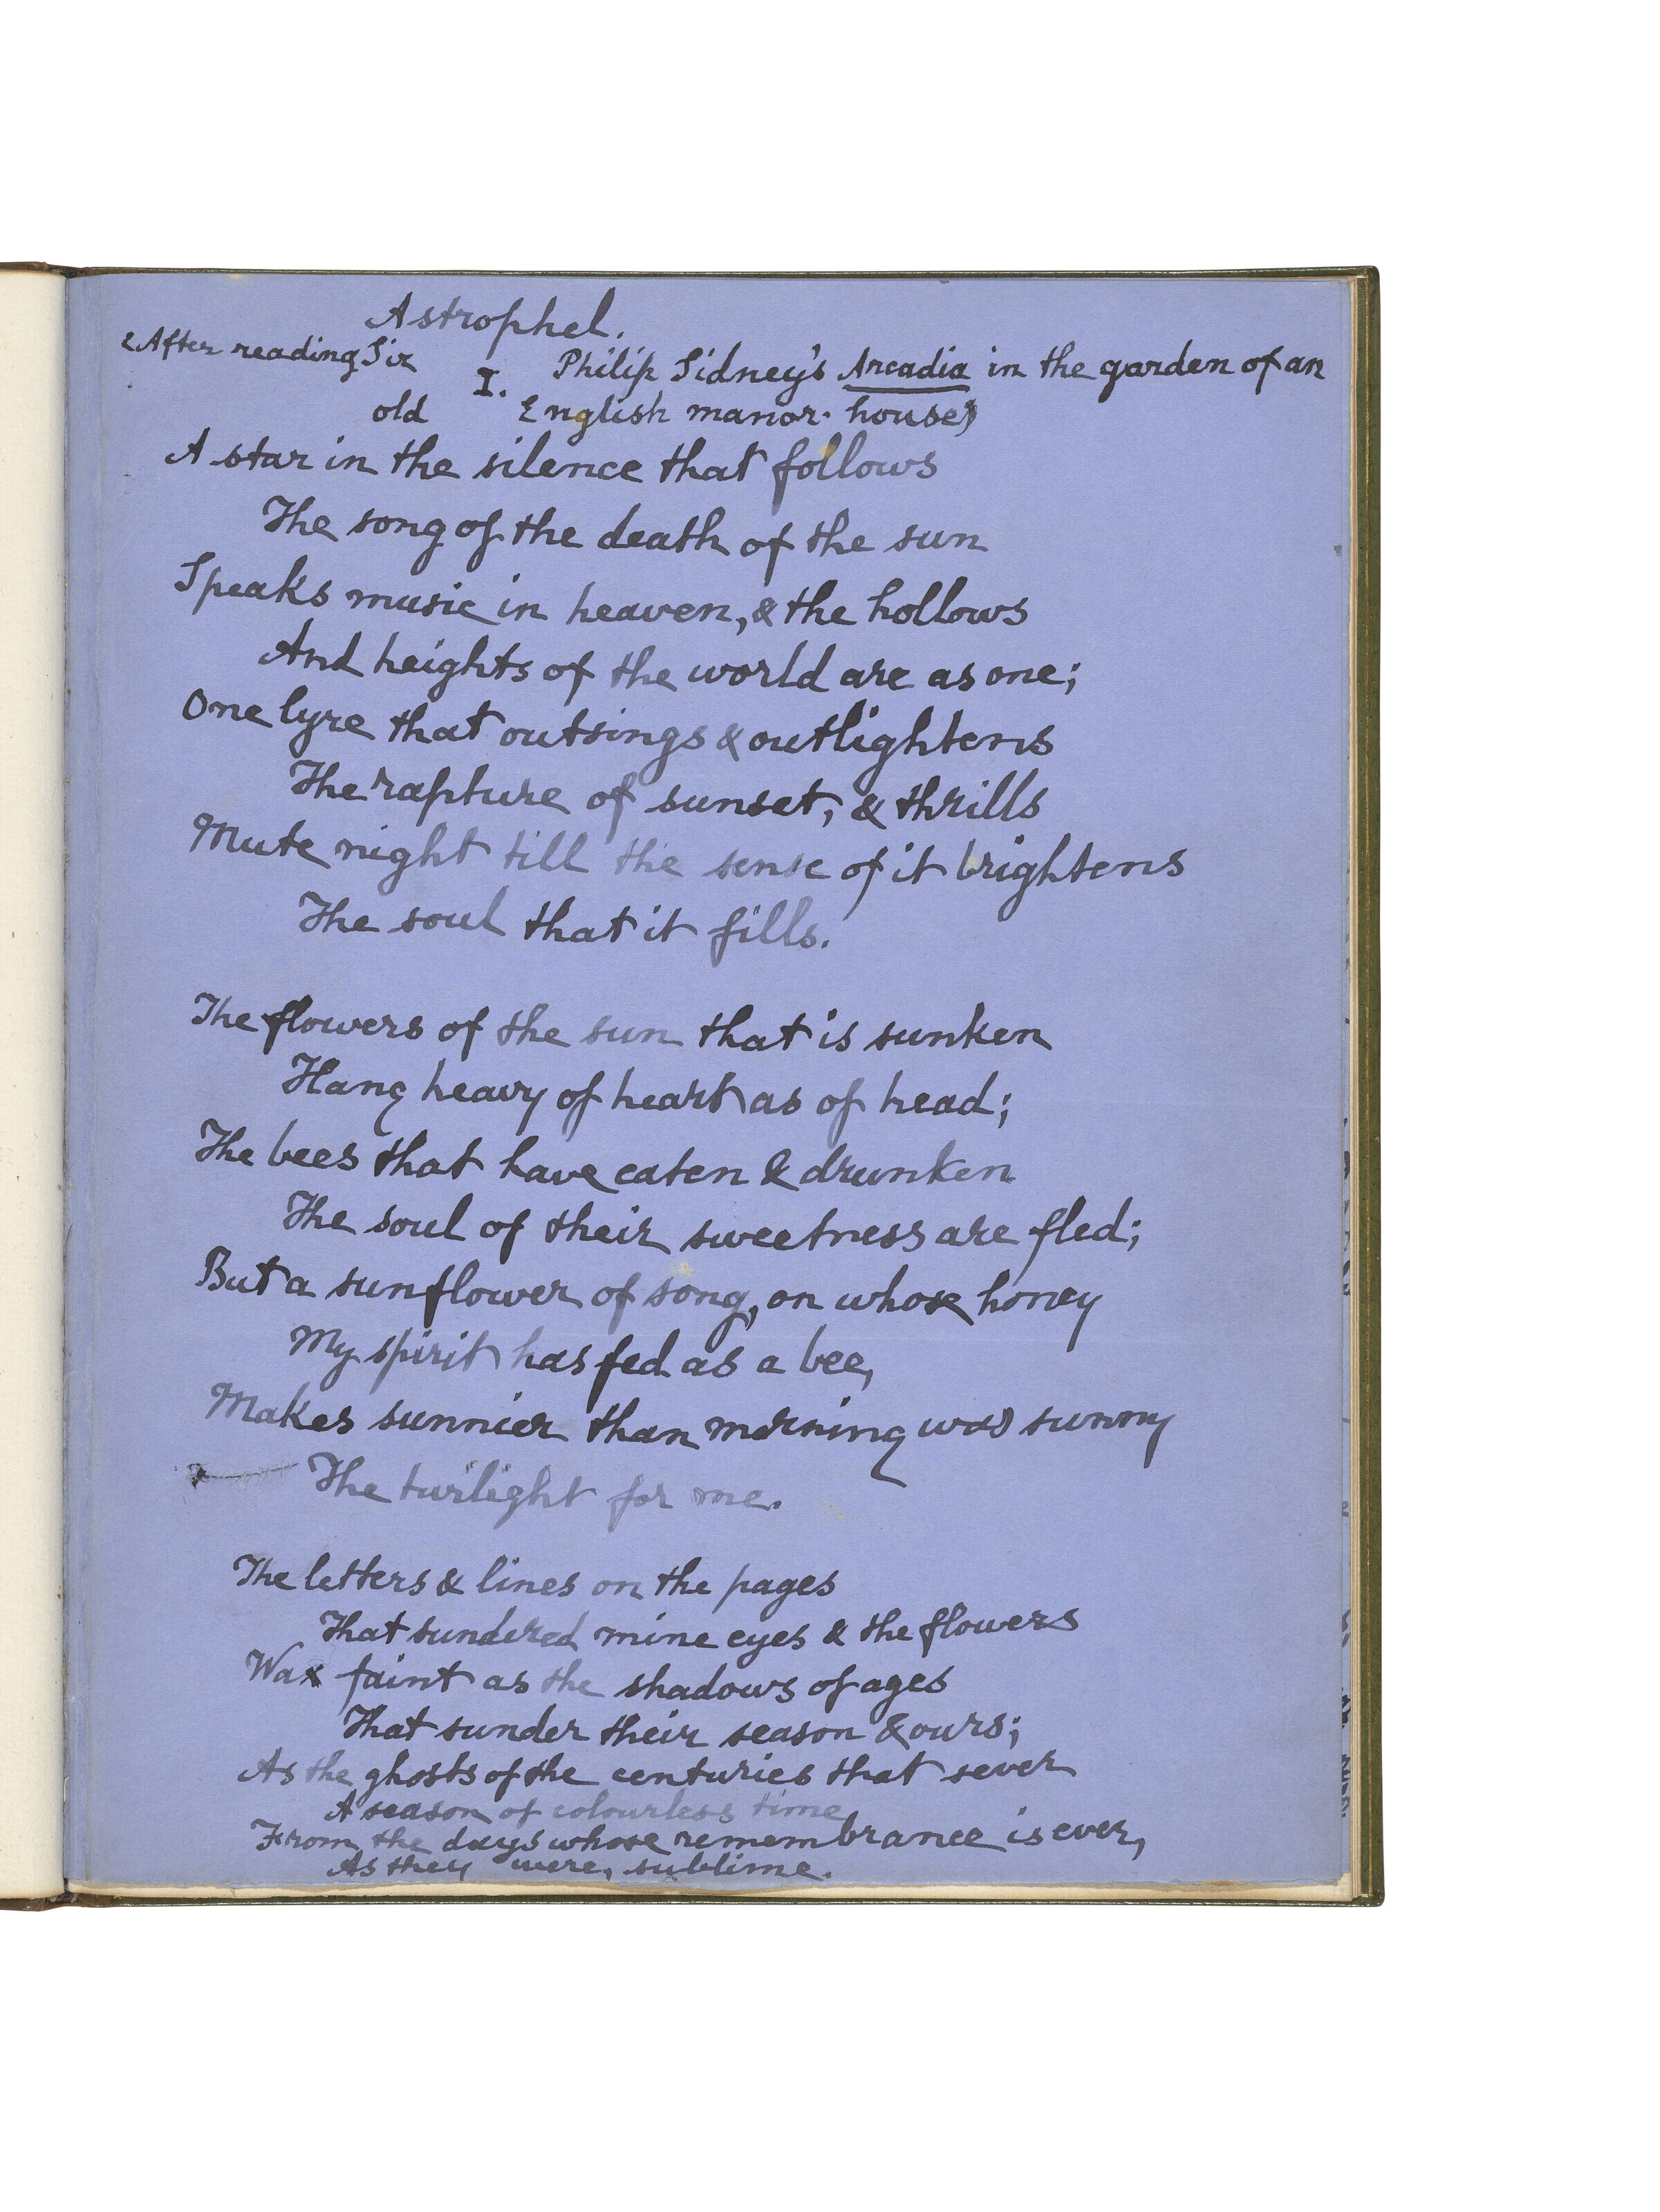 Astrophel.
(After reading Sir Philip Sidney's Arcadia in the garden of an
I.
old English manor-house)
A star in the silence that follows
The song of the death of the sun
Speaks music in heaven, & the hollows
And heights of the world are as one;
One lyre that outsings & outlightens
The rapture of sunset, & thrills
Mute night till the sense of it brightens
The soul that it fills.
The flowers of the sun that is sunken
Hang heavy of heart as of head;
The bees that have eaten & drunken
The soul of their sweetness are fled;
But a sunflower of song, on whose honey
My spirit has fed as a bee,
Makes sunnier than morning was sunny
The twilight for me.
The letters & lines on the pages
That sundered mine eyes & the flowers
Wax faint as the shadows of ages
That sunder their season & ours;
As the ghosts of the centuries that sever
A season of colourless time
From the days whose remembrance is ever,
As they were, sublime.